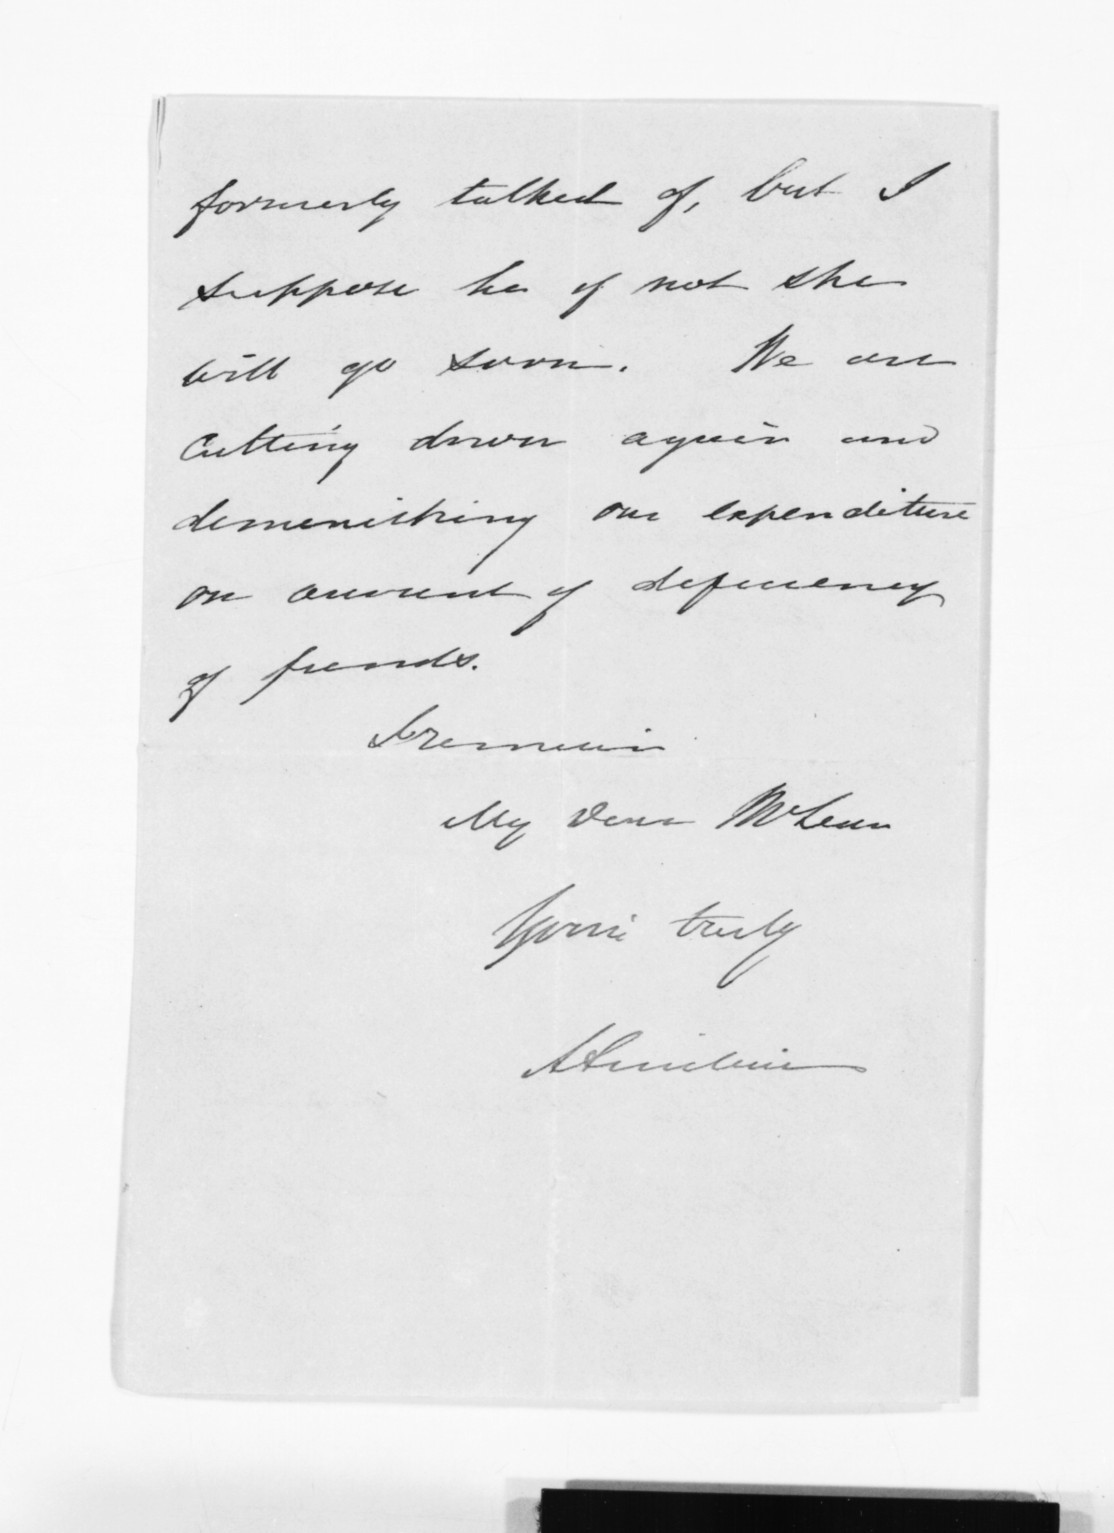 formerly talked of, but I
suppose he if not she
will go soon. We are
cutting down again and
dimenishing our expenditure
on account of deficiency
of funds.
I remain
My Dear McLean
Yours truly